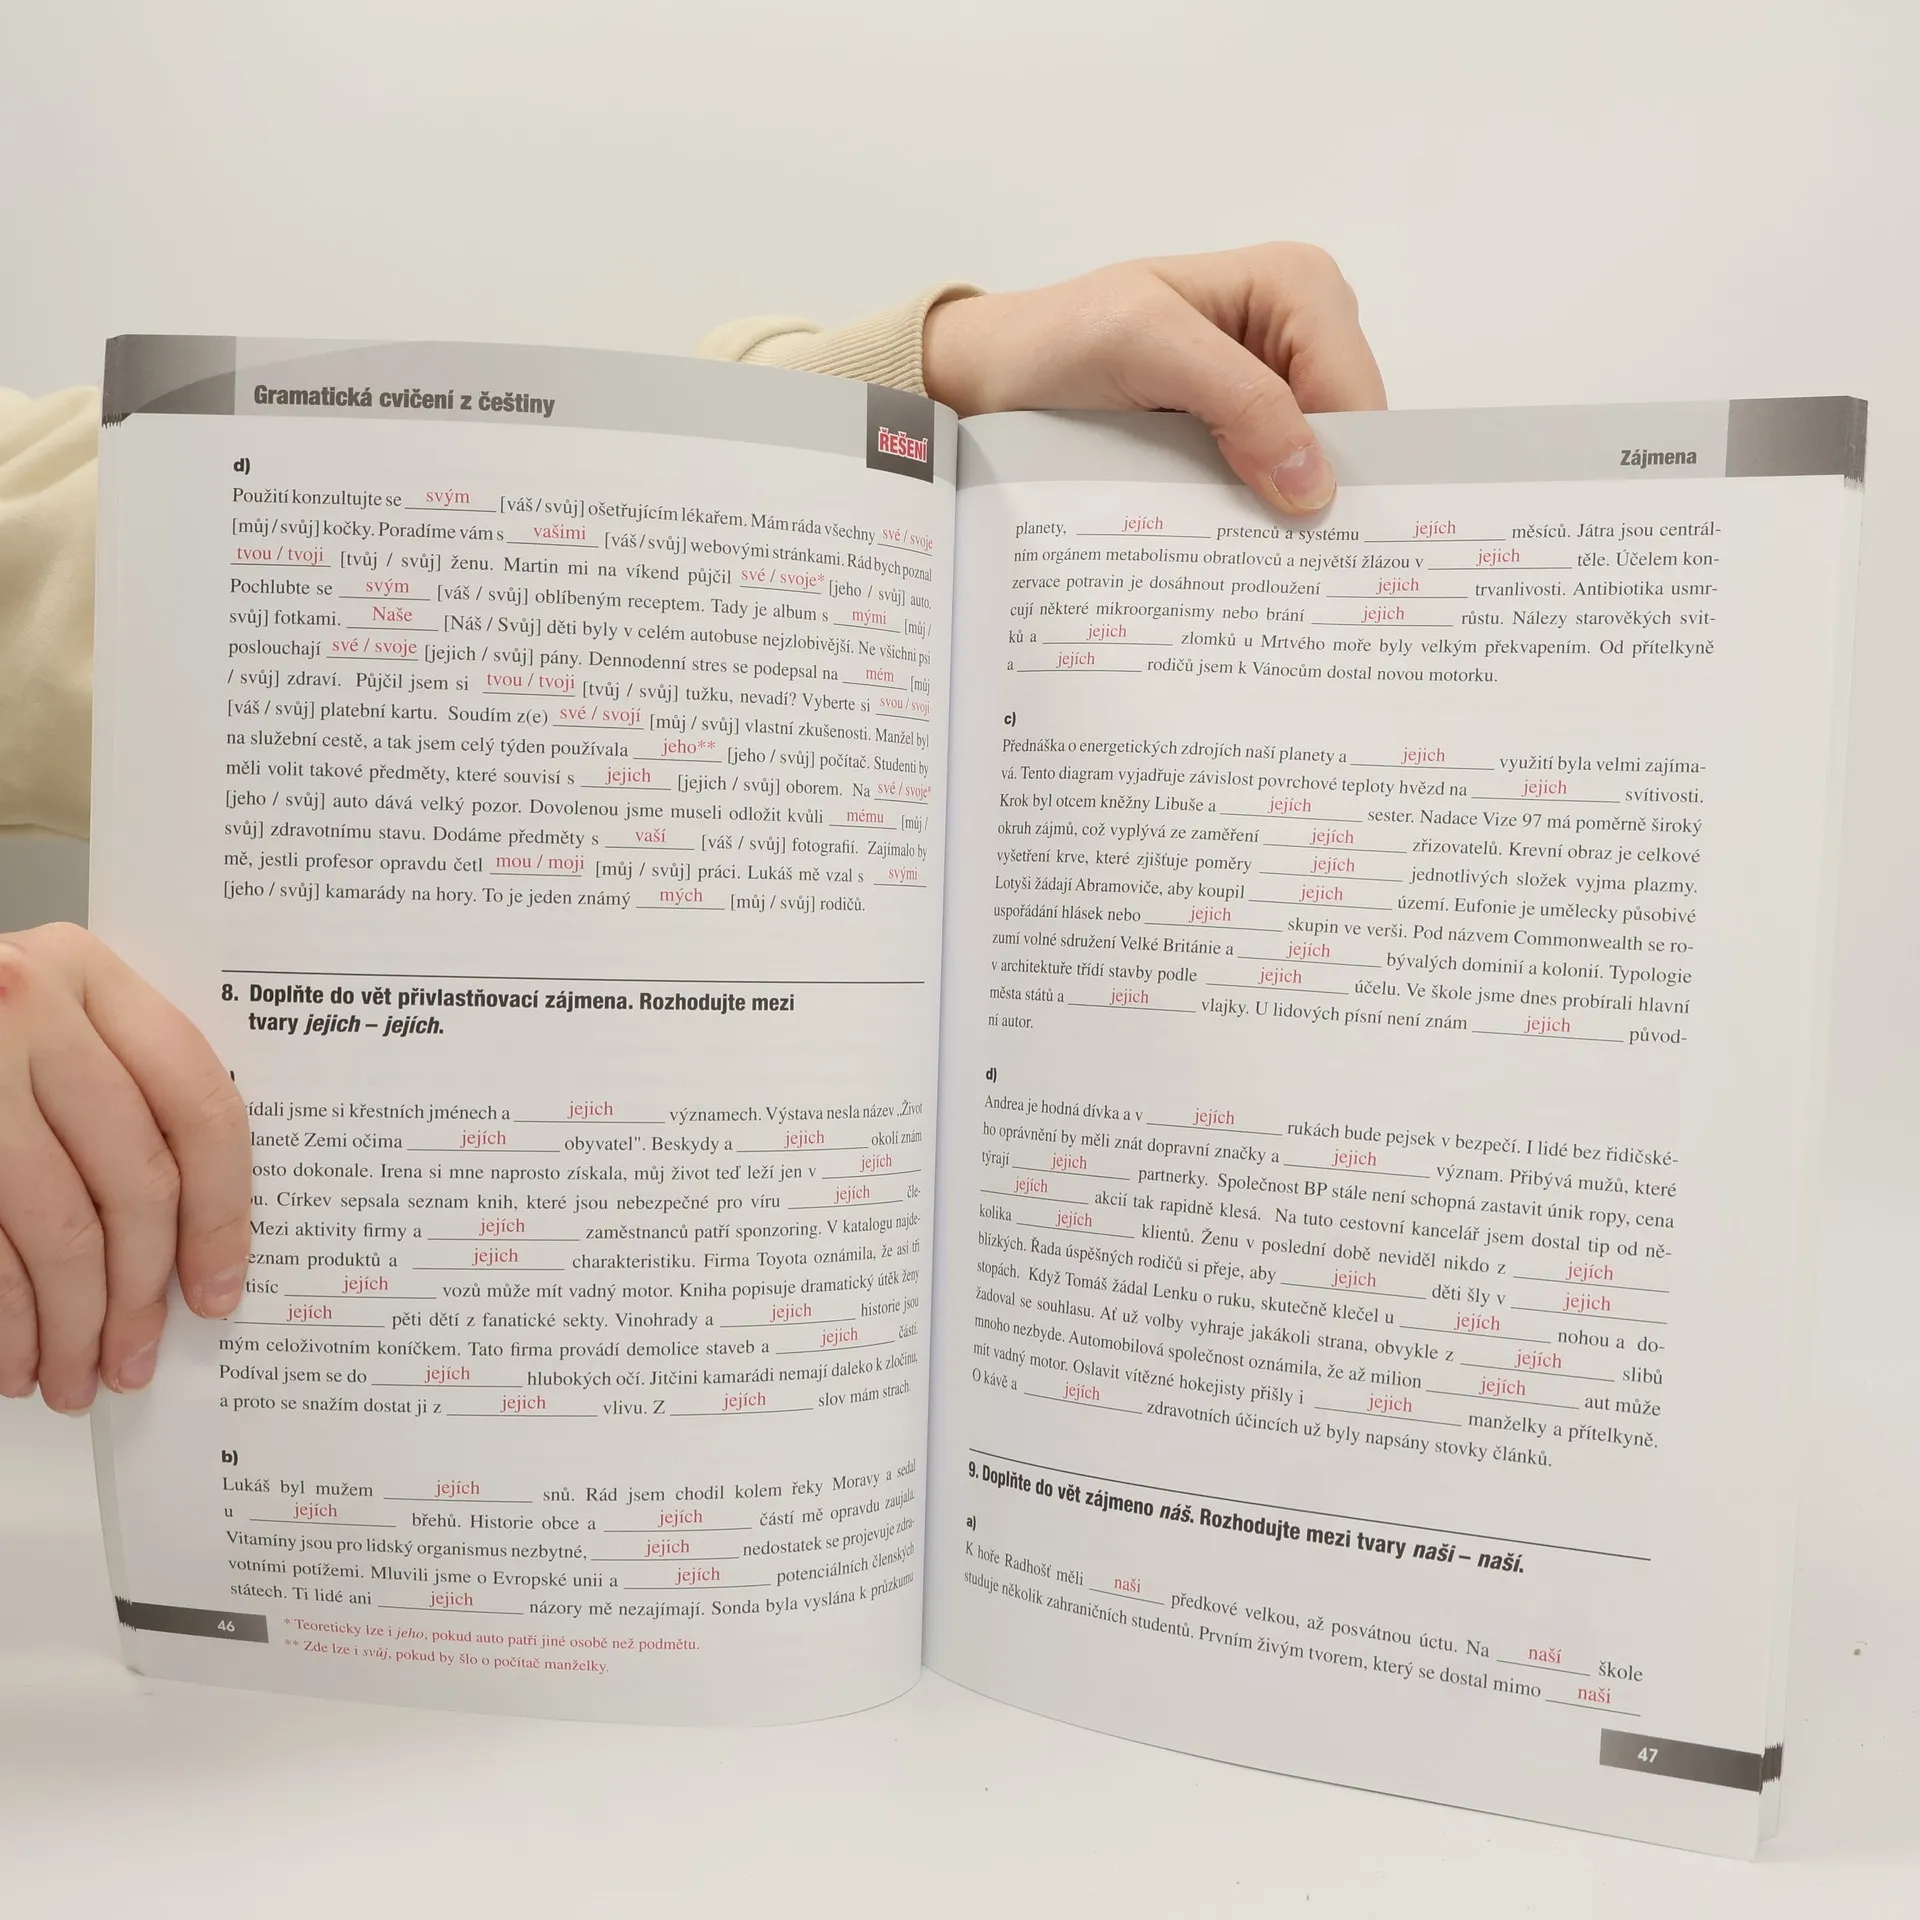 Gramatická cvičení z češtiny
ŘEŠENÍ
d)
Použití konzultujte se svým [váš / svůj] ošetřujícím lékařem. Mám ráda všechny své / svoje
[můj / svůj] kočky. Poradíme vám s vašimi [váš / svůj] webovými stránkami. Rád bych poznal
tvou / tvoji [tvůj / svůj] ženu. Martin mi na víkend půjčil své / svoje* [jeho / svůj] auto.
Pochlubte se svým [váš / svůj] oblíbeným receptem. Tady je album s mými [můj /
svůj] fotkami. Naše [Náš / Svůj] děti byly v celém autobuse nejzlobivější. Ne všichni psi
poslouchají své / svoje [jejich / svůj] pány. Dennodenní stres se podepsal na mém [můj
/ svůj] zdraví. Půjčil jsem si tvou / tvoji [tvůj / svůj] tužku, nevadí? Vyberte si svou / svoji
[váš / svůj] platební kartu. Soudím z(e) své / svojí [můj / svůj] vlastní zkušenosti. Manžel byl
na služební cestě, a tak jsem celý týden používala jeho** [jeho / svůj] počítač. Studenti by
měli volit takové předměty, které souvisí s jejich [jejich / svůj] oborem. Na své / svoje*
[jeho / svůj] auto dává velký pozor. Dovolenou jsme museli odložit kvůli mému [můj /
svůj] zdravotnímu stavu. Dodáme předměty s vaší [váš / svůj] fotografií. Zajímalo by
mě, jestli profesor opravdu četl mou / moji [můj / svůj] práci. Lukáš mě vzal s svými
[jeho / svůj] kamarády na hory. To je jeden známý mých [můj / svůj] rodičů.
8. Doplňte do vět přivlastňovací zájmena. Rozhodujte mezi
tvary jejich – jejích.
ídali jsme si křestních jménech a jejich významech. Výstava nesla název „Život
lanetě Zemi očima jejích obyvatel". Beskydy a jejich okolí znám
osto dokonale. Irena si mne naprosto získala, můj život teď leží jen v jejích
u. Církev sepsala seznam knih, které jsou nebezpečné pro víru jejích čle-
Mezi aktivity firmy a jejích zaměstnanců patří sponzoring. V katalogu najde-
eznam produktů a jejich charakteristiku. Firma Toyota oznámila, že asi tři
tisíc jejích vozů může mít vadný motor. Kniha popisuje dramatický útěk ženy
jejích pěti dětí z fanatické sekty. Vinohrady a jejich historie jsou
mým celoživotním koníčkem. Tato firma provádí demolice staveb a jejich části.
Podíval jsem se do jejích hlubokých očí. Jitčini kamarádi nemají daleko k zločinu,
a proto se snažím dostat ji z jejich vlivu. Z jejích slov mám strach.
b)
Lukáš byl mužem jejích snů. Rád jsem chodil kolem řeky Moravy a sedal
u jejích břehů. Historie obce a jejích částí mě opravdu zaujala.
Vitamíny jsou pro lidský organismus nezbytné, jejich nedostatek se projevuje zdra-
votními potížemi. Mluvili jsme o Evropské unii a jejích potenciálních členských
státech. Ti lidé ani jejich názory mě nezajímají. Sonda byla vyslána k průzkumu
* Teoreticky lze i jeho, pokud auto patří jiné osobě než podmětu.
** Zde lze i svůj, pokud by šlo o počítač manželky.
46
Zájmena
planety, jejích prstenců a systému jejích měsíců. Játra jsou centrál-
ním orgánem metabolismu obratlovců a největší žlázou v jejich těle. Účelem kon-
zervace potravin je dosáhnout prodloužení jejich trvanlivosti. Antibiotika usmr-
cují některé mikroorganismy nebo brání jejich růstu. Nálezy starověkých svit-
ků a jejich zlomků u Mrtvého moře byly velkým překvapením. Od přítelkyně
a jejích rodičů jsem k Vánocům dostal novou motorku.
c)
Přednáška o energetických zdrojích naší planety a jejich využití byla velmi zajíma-
vá. Tento diagram vyjadřuje závislost povrchové teploty hvězd na jejich svítivosti.
Krok byl otcem kněžny Libuše a jejích sester. Nadace Vize 97 má poměrně široký
okruh zájmů, což vyplývá ze zaměření jejích zřizovatelů. Krevní obraz je celkové
vyšetření krve, které zjišťuje poměry jejích jednotlivých složek vyjma plazmy.
Lotyši žádají Abramoviče, aby koupil jejich území. Eufonie je umělecky působivé
uspořádání hlásek nebo jejich skupin ve verši. Pod názvem Commonwealth se ro-
zumí volné sdružení Velké Británie a jejích bývalých dominií a kolonií. Typologie
v architektuře třídí stavby podle jejich účelu. Ve škole jsme dnes probírali hlavní
města států a jejich vlajky. U lidových písní není znám jejich původ-
ní autor.
d)
Andrea je hodná dívka a v jejích rukách bude pejsek v bezpečí. I lidé bez řidičské-
ho oprávnění by měli znát dopravní značky a jejich význam. Přibývá mužů, které
týrají jejich partnerky. Společnost BP stále není schopná zastavit únik ropy, cena
jejích akcií tak rapidně klesá. Na tuto cestovní kancelář jsem dostal tip od ně-
kolika jejích klientů. Ženu v poslední době neviděl nikdo z jejích
blízkých. Řada úspěšných rodičů si přeje, aby jejich děti šly v jejich
stopách. Když Tomáš žádal Lenku o ruku, skutečně klečel u jejích nohou a do-
žadoval se souhlasu. Ať už volby vyhraje jakákoli strana, obvykle z jejích slibů
mnoho nezbyde. Automobilová společnost oznámila, že až milion jejích aut může
mít vadný motor. Oslavit vítězné hokejisty přišly i jejich manželky a přítelkyně.
O kávě a jejích zdravotních účincích už byly napsány stovky článků.
9. Doplňte do vět zájmeno náš. Rozhodujte mezi tvary naši – naší.
a)
K hoře Radhošť měli naši předkové velkou, až posvátnou úctu. Na naší škole
studuje několik zahraničních studentů. Prvním živým tvorem, který se dostal mimo naši
47